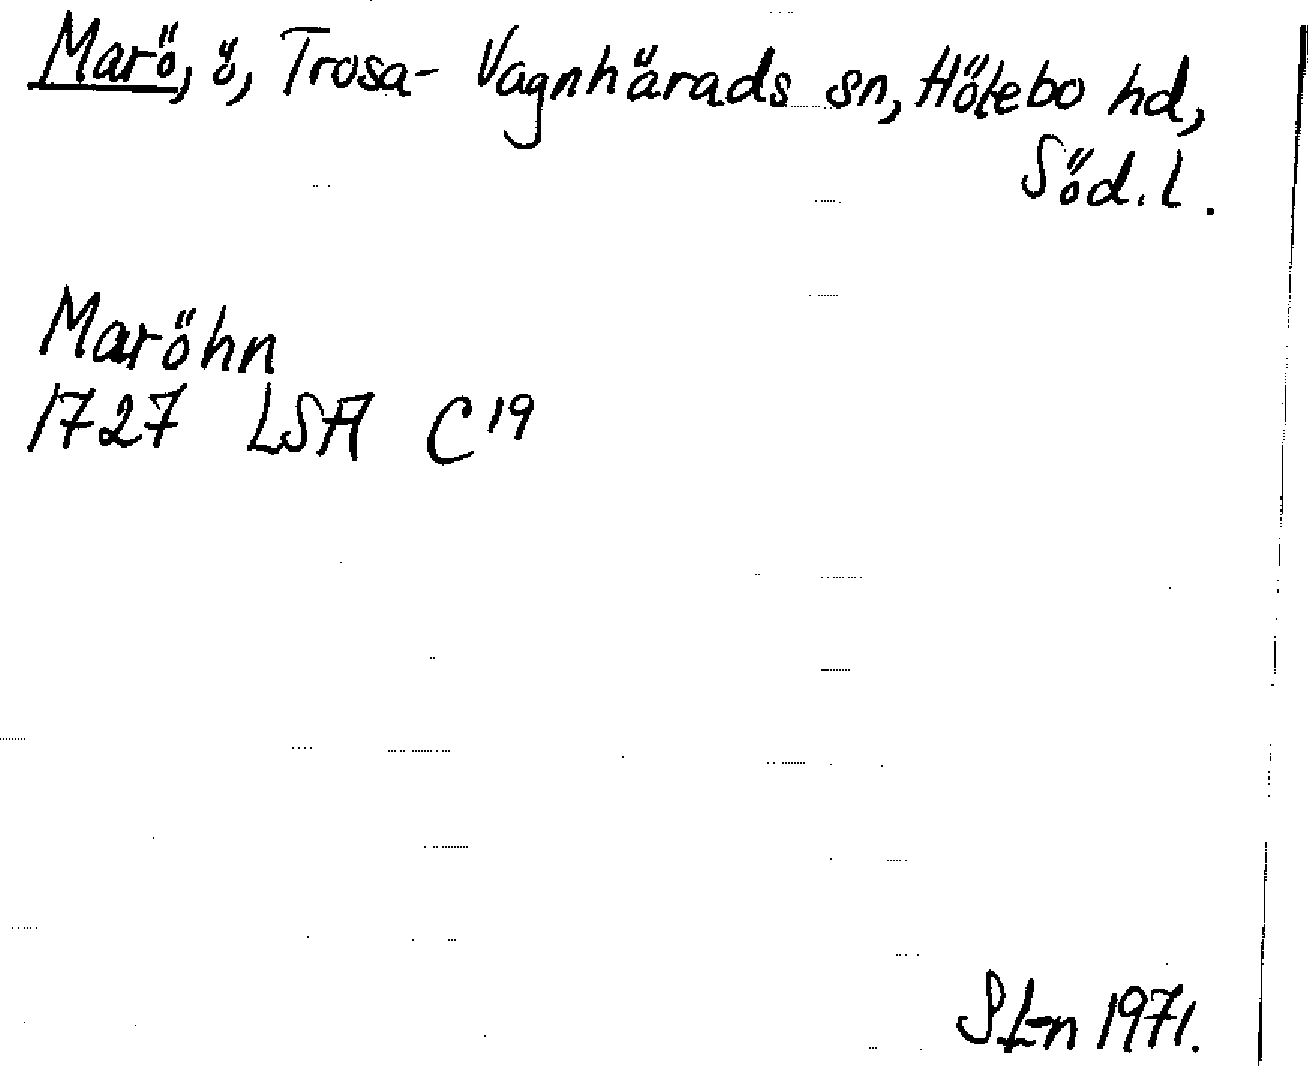 Marö, ö, Trosa-Vagnhärads sn, Hölebo hd,
Söd.l.
Maröhn
1727 LSA C19
1971.